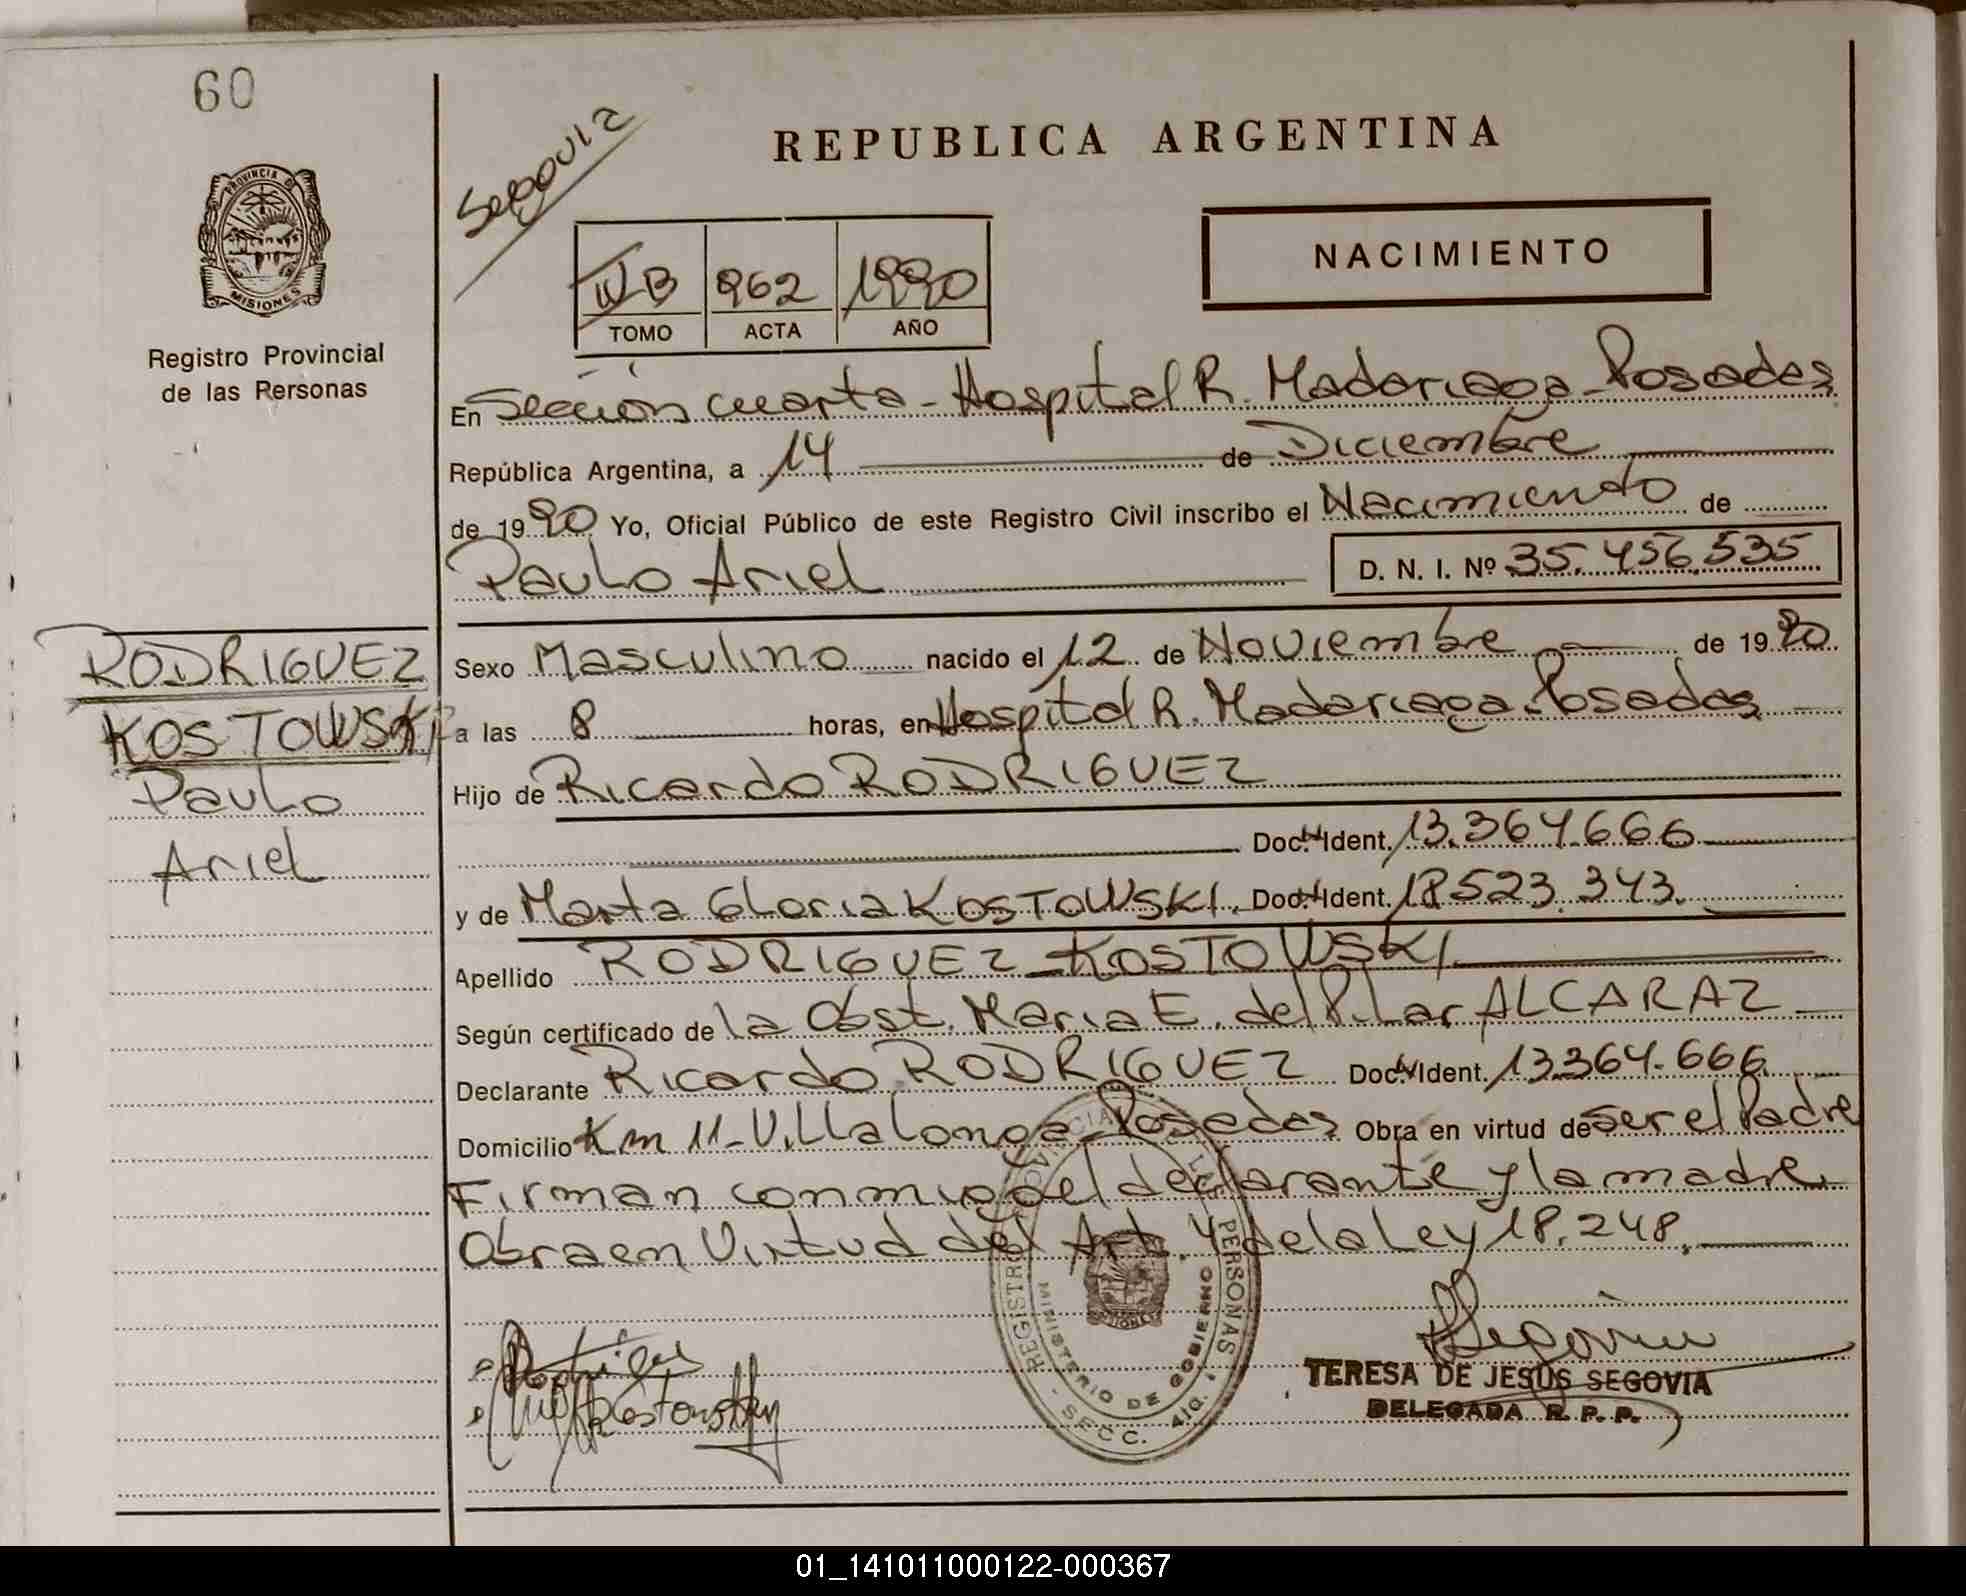 60
PROVINCIA DE
MISIONES
Registro Provincial
de las Personas
RODRIGUEZ
KOSTOWSKI
Paulo
Ariel
Segovia
REPUBLICA ARGENTINA
NACIMIENTO
IV B 962 1990
TOMO ACTA AÑO
En Sección cuarta - Hospital R. Madariaga - Posadas
República Argentina, a 14 de Diciembre
de 1990 Yo, Oficial Público de este Registro Civil inscribo el Nacimiento de
Paulo Ariel D. N. I. Nº 35.456.535
Sexo Masculino nacido el 12 de Noviembre de 1990
a las 8 horas, en Hospital R. Madariaga - Posadas
Hijo de Ricardo RODRIGUEZ
Doc. Ident. 13.364.666
y de Marta Gloria KOSTOWSKI. Doc. Ident. 18.523.343.
Apellido RODRIGUEZ - KOSTOWSKI
Según certificado de la Obst. Maria E. del Pilar ALCARAZ
Declarante Ricardo RODRIGUEZ Doc. Ident. 13.364.666
Domicilio Km 11 - Villalonga - Posadas Obra en virtud de ser el Padre
Firman conmigo el declarante y la madre
Obra en virtud del Art. 4 de la Ley 18.248.
REGISTRO PROVINCIAL DE LAS PERSONAS
MINISTERIO DE GOBIERNO
SECC. 4ta.
Rodriguez
Kostowski
Segovia
TERESA DE JESUS SEGOVIA
DELEGADA R. P. P.
01_141011000122-000367